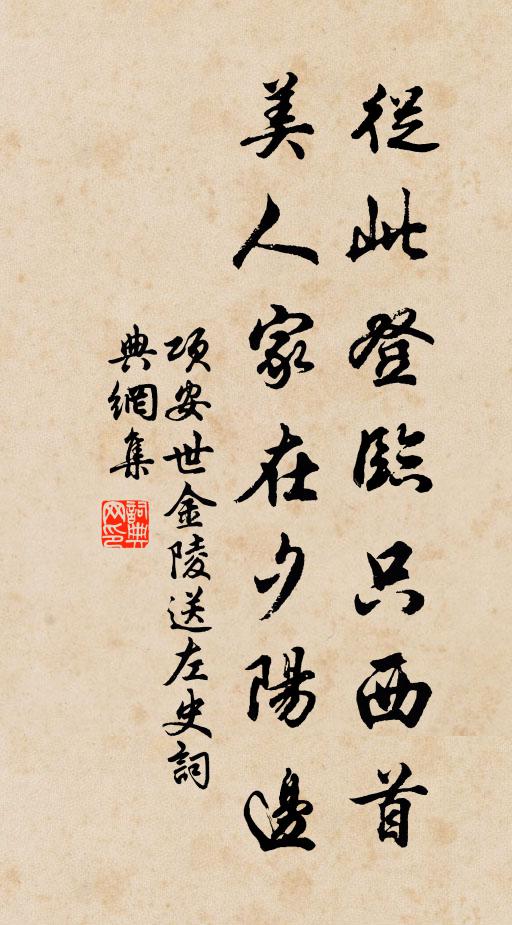 從此登臨只西首
美人家在夕陽邊
項安世金陵送左史詞
典網集
詞典
网印